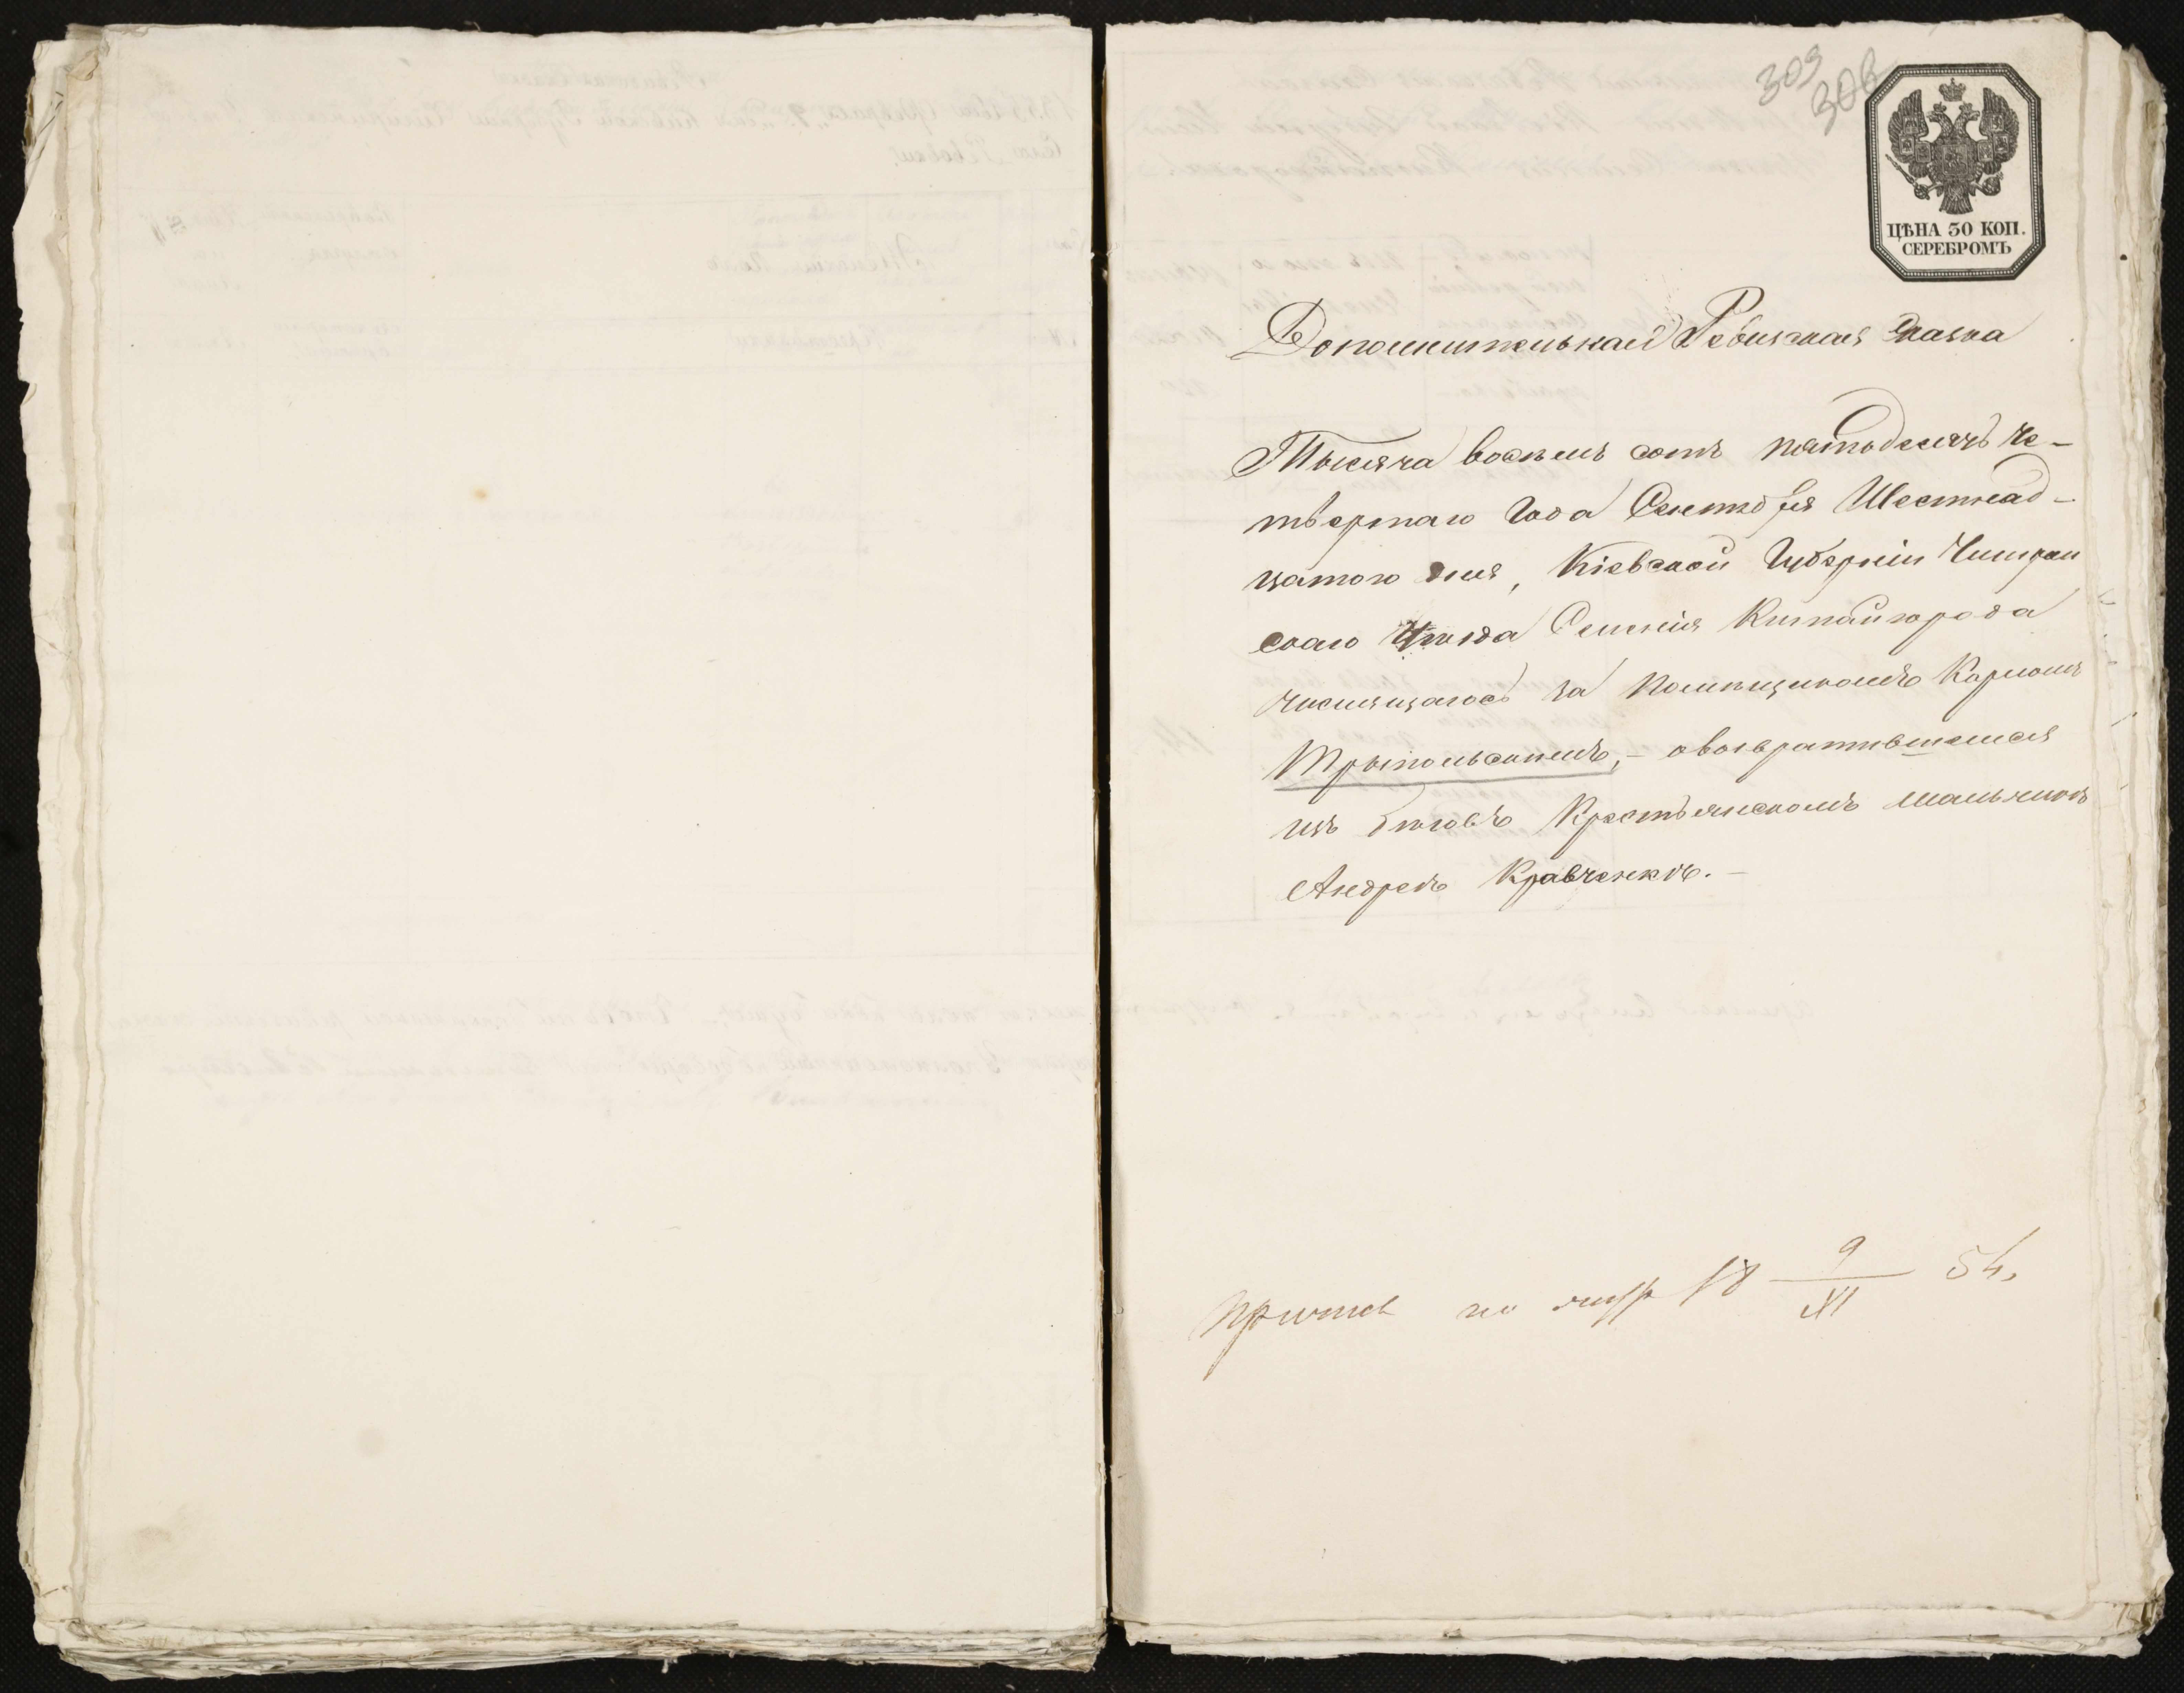 309
306
ЦѢНА 30 КОП.
СЕРЕБРОМЪ
Дополнительная Ревизская Сказка
Тысяча восемь сотъ пятьдесятъ че-
твертаго года Сентября Шестнад-
цатого дня, Кіевской Губерніи Чигрин
скаго уѣзда Селенія Китайгорода
числящагося за помѣщикомъ Карломъ
Трыпольскимъ, – овозвратившемся
изъ бѣговъ Крестьянскомъ мальчикѣ
Андреѣ Кравченкѣ. –
18 9/XI 54,